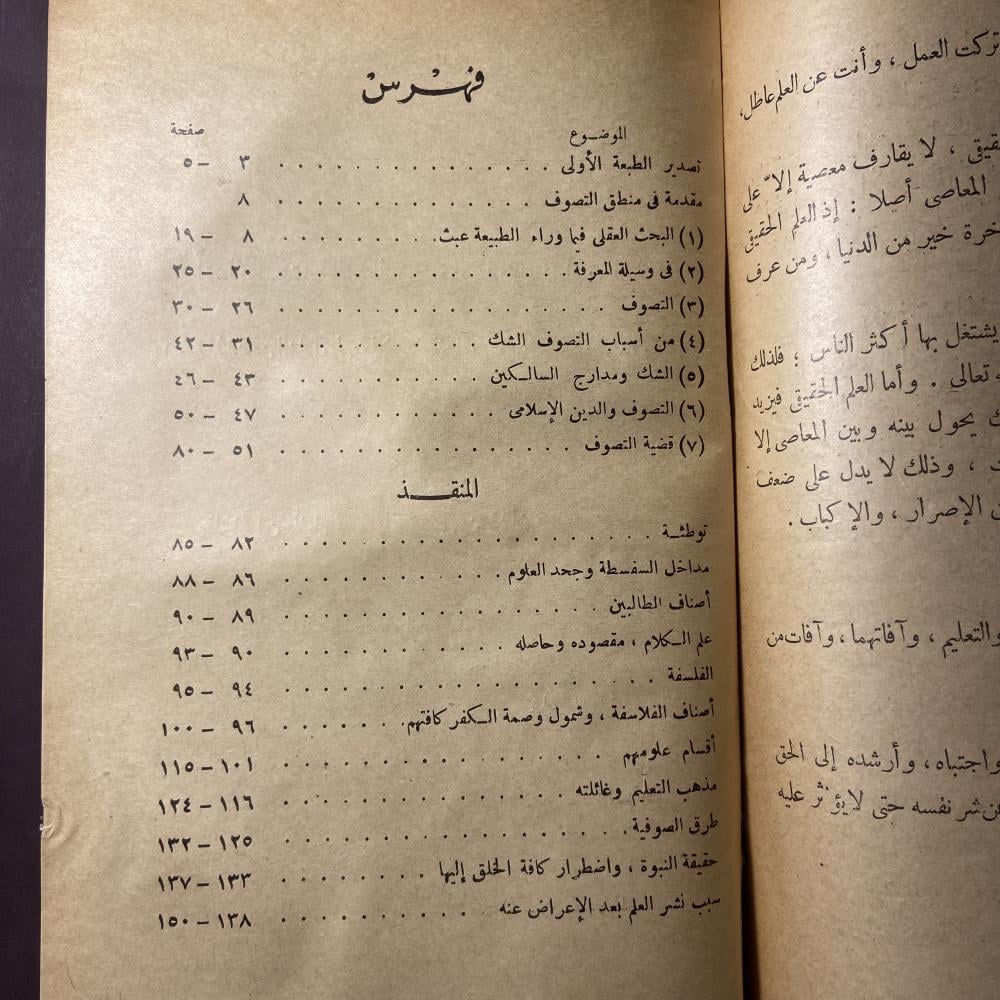 فهرس
الموضوع صفحة
تصدير الطبعة الأولى . . . . . . . . . . . . ٣ — ٥
مقدمة فى منطق التصوف . . . . . . . . . . . . ٨
(١) البحث العقلى فيما وراء الطبيعة عبث . . . . . . . . ٨ — ١٩
(٢) فى وسيلة المعرفة . . . . . . . . . . . . ٢٠ — ٢٥
(٣) التصوف . . . . . . . . . . . . ٢٦ — ٣٠
(٤) من أسباب التصوف الشك . . . . . . . . . . ٣١ — ٤٢
(٥) الشك ومدارج السالكين . . . . . . . . . . ٤٣ — ٤٦
(٦) التصوف والدين الإسلامى . . . . . . . . . . ٤٧ — ٥٠
(٧) قضية التصوف . . . . . . . . . . . . ٥١ — ٨٠
المنقذ
توطئة . . . . . . . . . . . . ٨٢ — ٨٥
مداخل السفسطة وجحد العلوم . . . . . . . . . . ٨٦ — ٨٨
أصناف الطالبين . . . . . . . . . . . . ٨٩ — ٩٠
علم الكلام ، مقصوده وحاصله . . . . . . . . . . ٩٠ — ٩٣
الفلسفة . . . . . . . . . . . . ٩٤ — ٩٥
أصناف الفلاسفة ، وشمول وصمة الكفر كافتهم . . . . . . ٩٦ — ١٠٠
أقسام علومهم . . . . . . . . . . . . ١٠١ — ١١٥
مذهب التعليم وغائلته . . . . . . . . . . . . ١١٦ — ١٢٤
طرق الصوفية . . . . . . . . . . . . ١٢٥ — ١٣٢
حقيقة النبوة ، واضطرار كافة الخلق إليها . . . . . . . . ١٣٣ — ١٣٧
سبب نشر العلم بعد الإعراض عنه . . . . . . . . . . ١٣٨ — ١٥٠
تركت العمل ، وأنت عن العلم عاطل،
، لا يقارف معصية إلا على
المعاصى أصلا : إذ العلم الحقيقى
خير من الدنيا ، ومن عرف
يشتغل بها أكثر الناس ؛ فلذلك
تعالى . وأما العلم الحقيقى فيزيد
يحول بينه وبين المعاصى إلا
، وذلك لا يدل على ضعف
الإصرار ، والإكباب .
والتعليم ، وآفاتهما ، وآفات من
واجتباه ، وأرشده إلى الحق
شر نفسه حتى لا يؤثر عليه